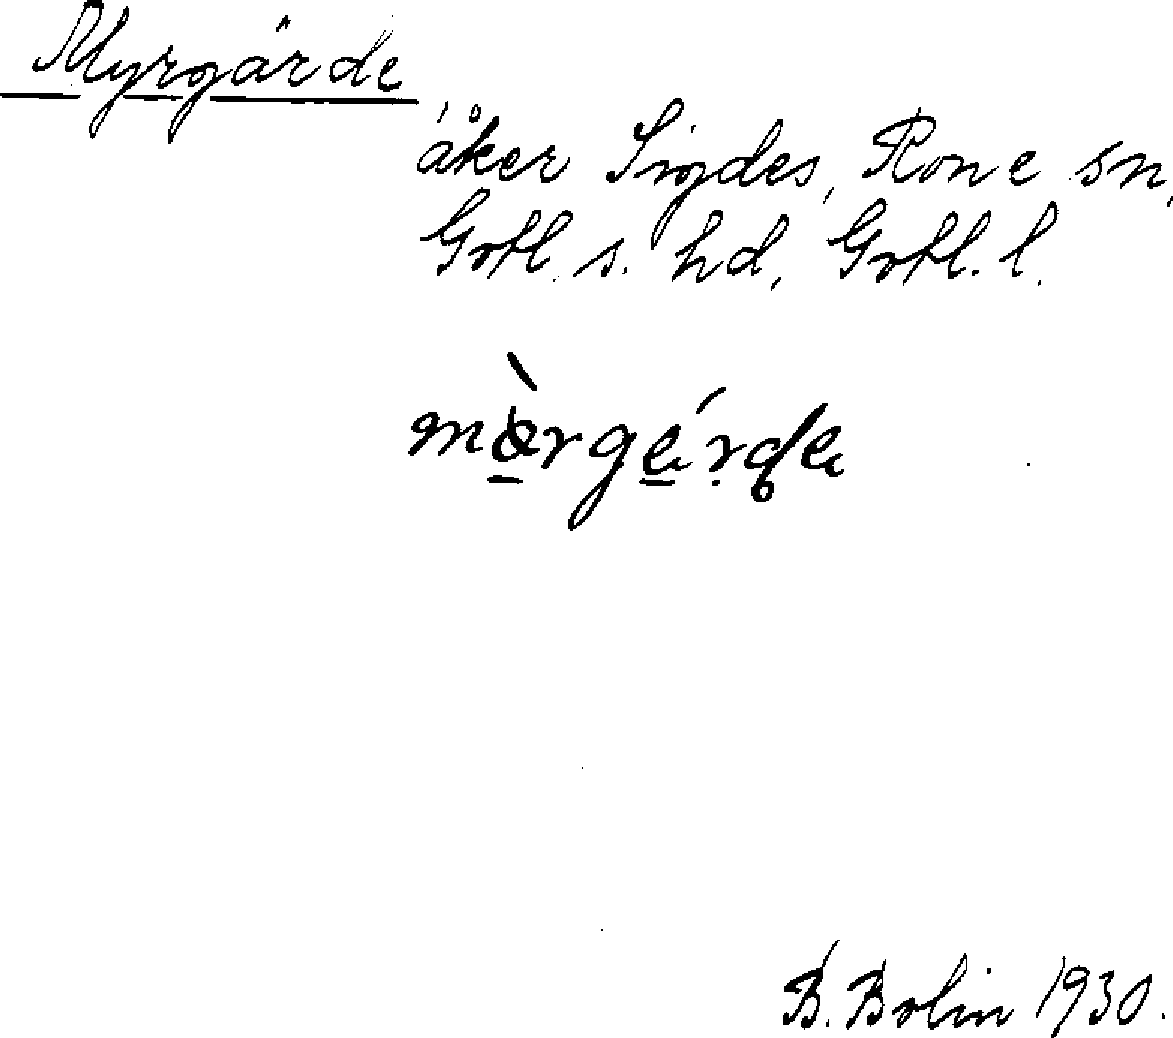 Myrgärde
åker Sigdes, Rone sn,
Gotl. s. hd, Gotl. l.
B. Bolin 1930.